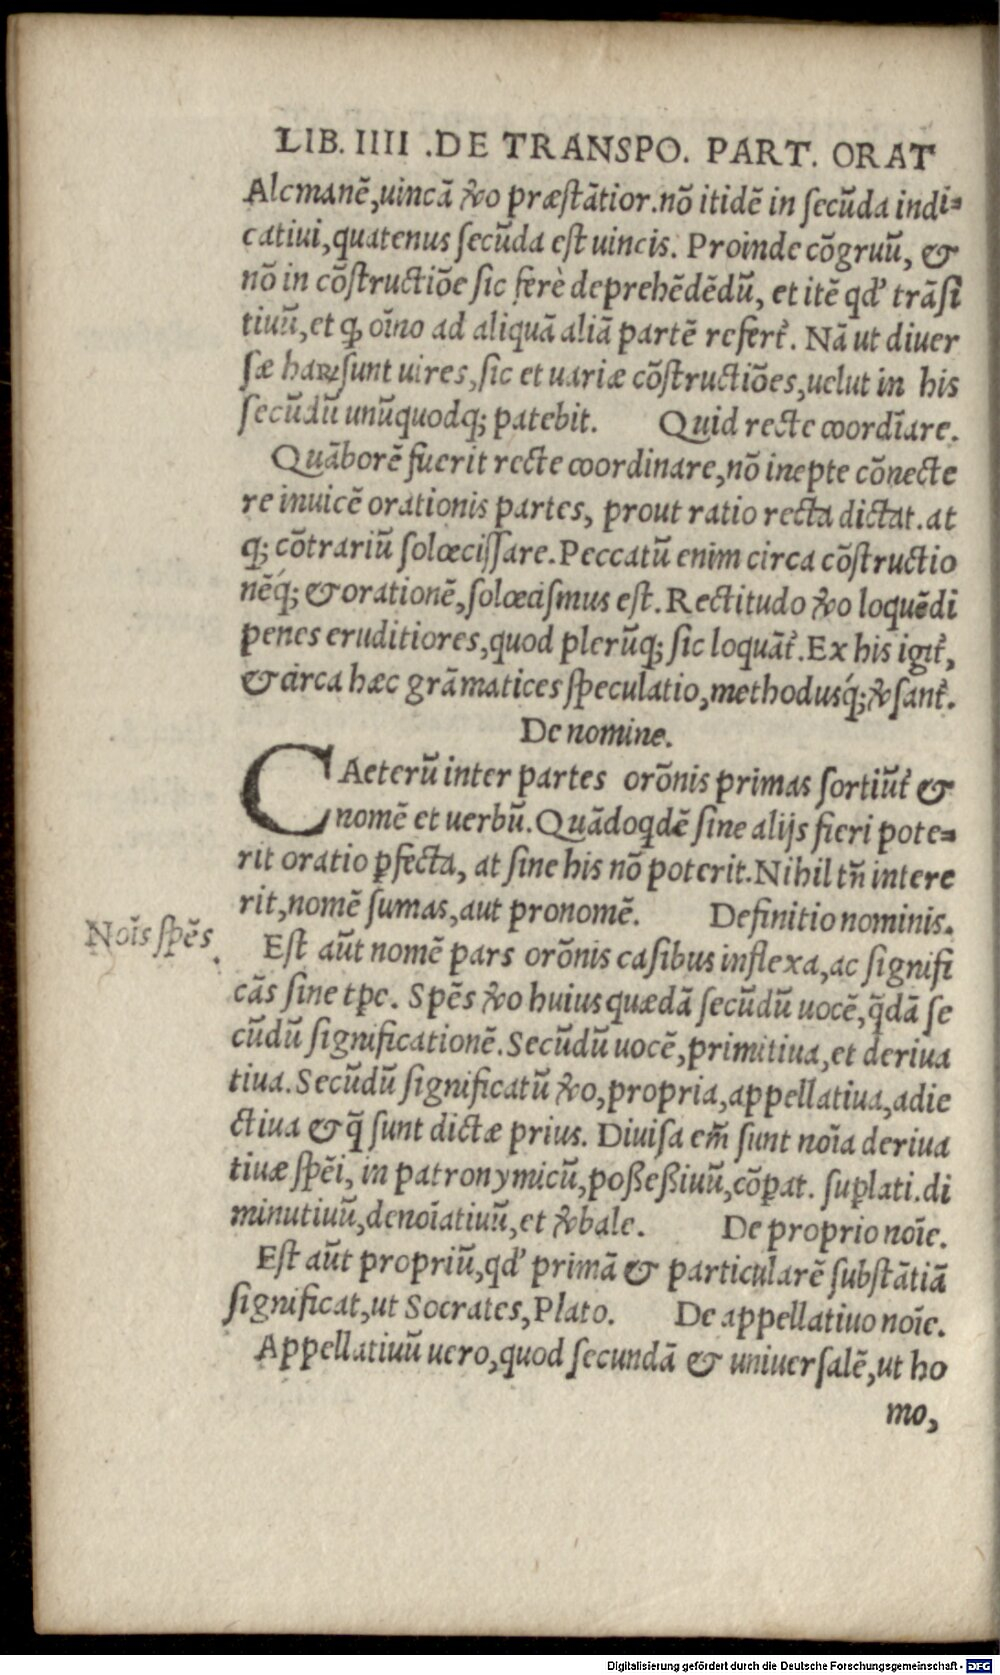 LIB. IIII .DE TRANSPO. PART. ORAT
Alcmanē,uincā ꝟo præſtātior.nō itidē in ſecūda indi⸗
catiui,quatenus ſecūda eſt uincis. Proinde cōgruū, &
nō in cōſtructiōe ſic ferè deprehēdēdū, et itē qd' trāſi
tiuū,et ꝙ oīno ad aliquā aliā partē refert᷑. Nā ut diuer
ſæ haꝝ ſunt uires,ſic et uariæ cōſtructiōes,uelut in his
ſecūdū unūquodq; patebit. Quid recte coordīare.
Quāborē fuerit recte coordinare,nō inepte cōnecte
re inuicē orationis partes, prout ratio recta dictat. at
q; cōtrariū ſolœciſſare. Peccatū enim circa cōſtructio
nēq́; & orationē,ſolœciſmus eſt. Rectitudo ꝟo loquēdi
penes eruditiores,quod plerūq; ſic loquāt᷑. Ex his igit᷑,
& circa hæc grāmatices ſpeculatio,methodusq́;ꝟſant᷑.
De nomine.
CAeterū inter partes orōnis primas ſortiūt᷑ &
nomē et uerbū. Quādoqdē ſine alijs fieri pote⸗
rit oratio ꝑfecta, at ſine his nō poterit. Nihil tn̄ intere
rit,nomē ſumas,aut pronomē. Definitio nominis.
Noīs ſpēs.
Eſt aūt nomē pars orōnis caſibus inflexa,ac ſignifi
cās ſine tꝑe. Spēs ꝟo huius quædā ſecūdū uocē,q̄dā ſe
cūdū ſignificationē. Secūdū uocē,primitiua,et deriua
tiua. Secūdū ſignificatū ꝟo,propria,appellatiua,adie
ctiua & q̄ ſunt dictæ prius. Diuiſa em̄ ſunt noīa deriua
tiuæ ſpēi, in patronymicū,poßeßiuū,cōꝑat. ſuꝑlati.di
minutiuū,denoīatiuū,et ꝟbale. De proprio noīe.
Eſt aūt propriū,qd' primā & particularē ſubſtātiā
ſignificat,ut Socrates,Plato. De appellatiuo noīe.
Appellatiuū uero,quod ſecundā & uniuerſalē,ut ho
mo,
Digitalisierung gefördert durch die Deutsche Forschungsgemeinschaft - DFG